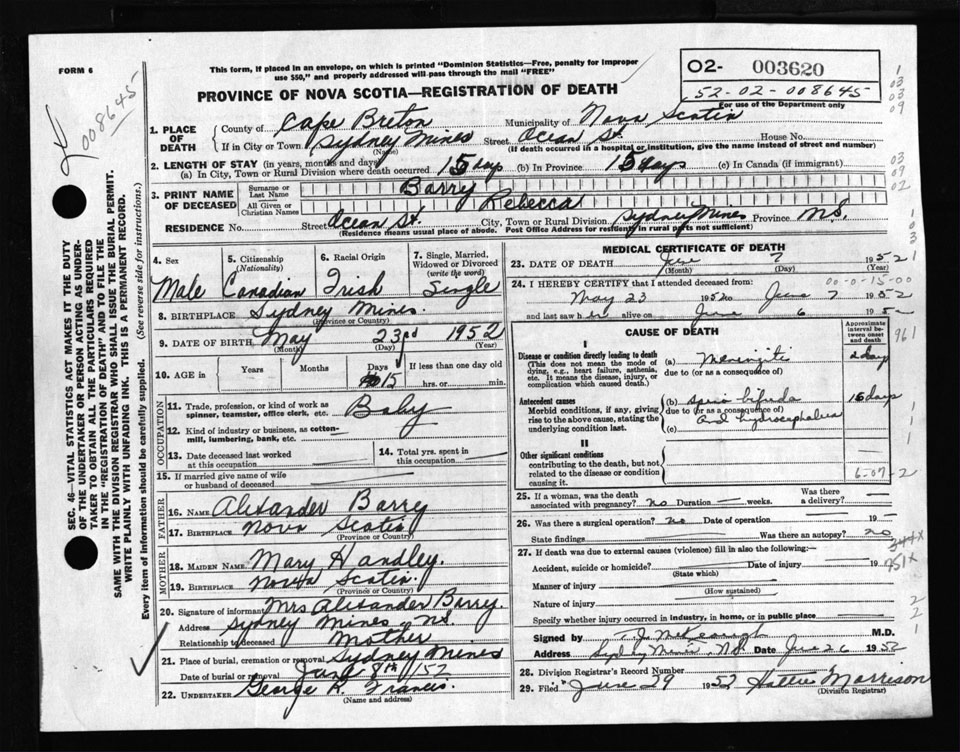 FORM 6
008645
This form, if placed in an envelope, on which is printed "Dominion Statistics—Free, penalty for improper
use $50," and properly addressed will pass through the mail "FREE"
PROVINCE OF NOVA SCOTIA—REGISTRATION OF DEATH
O2- 003620
52-02-008645
For use of the Department only
1. PLACE OF DEATH
County of Cape Breton Municipality of Nova Scotia
If in City or Town Sydney Mines Street Ocean St. House No.
(Name) (If death occurred in a hospital or institution, give the name instead of street and number)
2. LENGTH OF STAY (in years, months and days)
(a) In City, Town or Rural Division where death occurred 15 days (b) In Province 15 days (c) In Canada (if immigrant)
3. PRINT NAME OF DECEASED
Surname or Last Name Barry
All Given or Christian Names Rebecca
RESIDENCE No. Street Ocean St. City, Town or Rural Division Sydney Mines Province N.S.
(Residence means usual place of abode. Post Office Address for residents in rural parts not sufficient)
4. Sex Male
5. Citizenship (Nationality) Canadian
6. Racial Origin Irish
7. Single, Married, Widowed or Divorced (write the word) Single
8. BIRTHPLACE Sydney Mines.
(Province or Country)
9. DATE OF BIRTH May 23rd 1952
(Month) (Day) (Year)
10. AGE in Years Months Days 15 If less than one day old
hrs. or min.
OCCUPATION
11. Trade, profession, or kind of work as spinner, teamster, office clerk, etc. Baby
12. Kind of industry or business, as cotton-mill, lumbering, bank, etc.
13. Date deceased last worked at this occupation
14. Total yrs. spent in this occupation
15. If married give name of wife or husband of deceased
FATHER
16. NAME Alexander Barry
17. BIRTHPLACE Nova Scotia
(Province or Country)
MOTHER
18. MAIDEN NAME Mary Handley.
19. BIRTHPLACE Nova Scotia.
(Province or Country)
20. Signature of informant Mrs Alexander Barry.
Address Sydney Mines NS.
Relationship to deceased Mother
21. Place of burial, cremation or removal Sydney Mines
Date of burial or removal June 8th /52
22. UNDERTAKER George R. Francis.
(Name and address)
MEDICAL CERTIFICATE OF DEATH
23. DATE OF DEATH June 7 1952
(Month) (Day) (Year)
00-0-15-00
24. I HEREBY CERTIFY that I attended deceased from:
May 23 1952 to June 7 1952
and last saw her alive on June 6 1952
CAUSE OF DEATH
Approximate interval between onset and death
I
Disease or condition directly leading to death
(This does not mean the mode of dying, e.g., heart failure, asthenia, etc. It means the disease, injury, or complication which caused death.)
(a) Meningitis 2 days
due to (or as a consequence of)
Antecedent causes
Morbid conditions, if any, giving rise to the above cause, stating the underlying condition last.
(b) Spina bifida 15 days
due to (or as a consequence of)
and hydrocephalus
(c)
II
Other significant conditions
contributing to the death, but not related to the disease or condition causing it.
6-07-2
25. If a woman, was the death associated with pregnancy? no Duration weeks. Was there a delivery?
26. Was there a surgical operation? no Date of operation 19
State findings Was there an autopsy? no
27. If death was due to external causes (violence) fill in also the following:—
Accident, suicide or homicide? Date of injury 19
(State which)
Manner of injury
(How sustained)
Nature of injury
Specify whether injury occurred in industry, in home, or in public place
Signed by M.D.
Address Sydney Mines, N.S. Date June 26 1952
28. Division Registrar's Record Number
29. Filed June 29 1952 Hallie Morrison
(Division Registrar)
SEC. 46—VITAL STATISTICS ACT MAKES IT THE DUTY
OF THE UNDERTAKER OR PERSON ACTING AS UNDER-
TAKER TO OBTAIN ALL THE PARTICULARS REQUIRED
IN THE "REGISTRATION OF DEATH" AND TO FILE THE
SAME WITH THE DIVISION REGISTRAR WHO SHALL ISSUE THE BURIAL PERMIT.
WRITE PLAINLY WITH UNFADING INK. THIS IS A PERMANENT RECORD.
Every item of information should be carefully supplied. (See reverse side for instructions.)